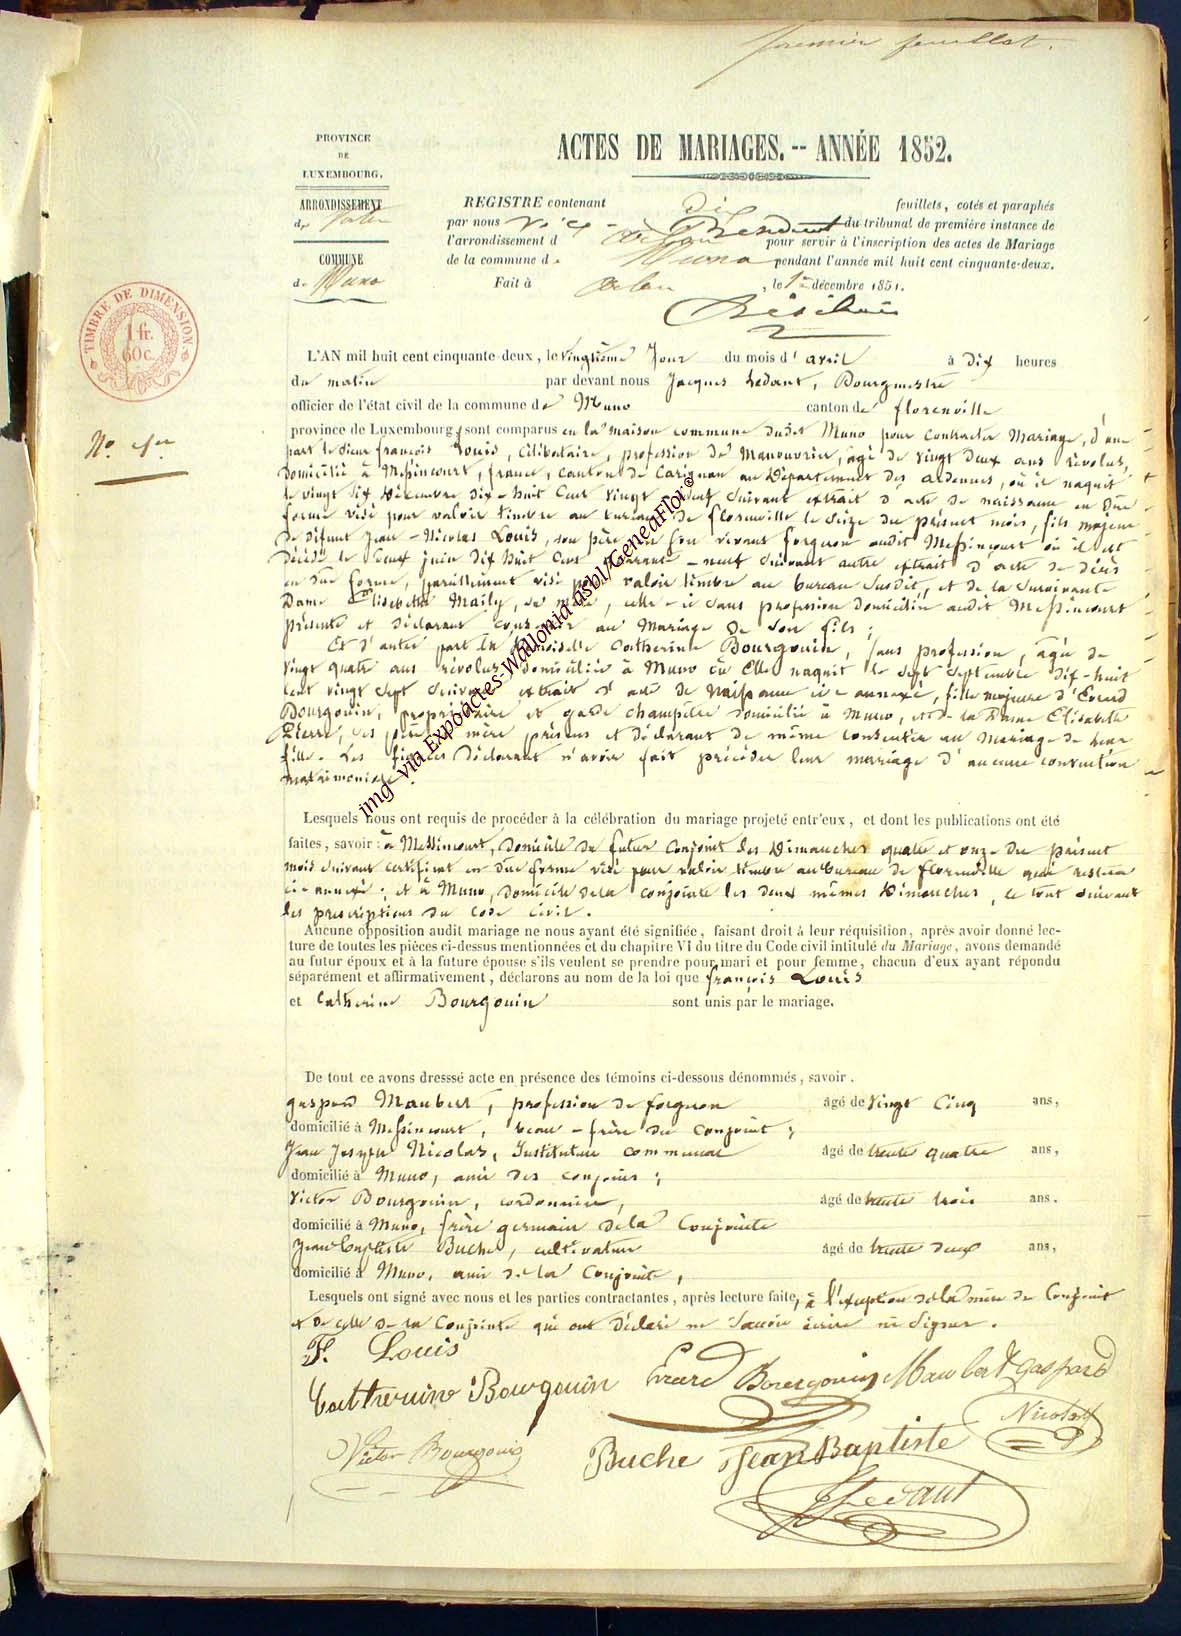 premier feuillet.
PROVINCE
DE
LUXEMBOURG.
ACTES DE MARIAGES. -- ANNÉE 1852.
ARRONDISSEMENT
de
COMMUNE
de Muno
REGISTRE contenant Dix feuillets, cotés et paraphés
par nous Vice-Président du tribunal de première instance de
l'arrondissement d'Arlon pour servir à l'inscription des actes de Mariage
de la commune de Muno pendant l'année mil huit cent cinquante-deux.
Fait à Arlon, le 1er décembre 1851.
TIMBRE DE DIMENSION
1 fr.
60 c.
No. 1er
L'AN mil huit cent cinquante-deux, le vingtième Jour du mois d'avril à dix heures
du matin par devant nous Jacques Ledant, Bourgmestre
officier de l'état civil de la commune de Muno canton de florenville
province de Luxembourg, sont comparus en la maison commune dudit Muno pour contracter Mariage, d'une
part le sieur françois Louis, célibataire, profession de Manouvrier, agé de vingt deux ans révolus,
Domicilié à Messincourt, france, canton de Carignan au Département des ardennes, où il naquit
le vingt six Décembre dix-huit Cent vingt neuf suivant extrait d'acte de naissance en Due
forme visé pour valoir timbre au bureau de florenville le seize du présent mois, fils majeur
de défunt Jean-Nicolas Louis, son père en son vivant forgeron audit Messincourt où il est
Décédé le deux juin dix huit Cent quarante-neuf suivant autre extrait d'acte de décès
en due forme, pareillement visé pour valoir timbre au bureau susdit, et de la survivante
Dame Elisabeth Maily, sa mère, celle-ci sans profession domiciliée audit Messincourt
présente et déclarant consentir au Mariage de son fils;
Et d'autre part la Demoiselle Catherine Bourgouin, sans profession, agée de
vingt quatre ans révolus, domiciliée à Muno où Elle naquit le sept septembre dix-huit
Cent vingt sept suivant extrait d'acte de Naissance ici annexé, fille majeure d'Evrard
Bourgouin, propriétaire et garde champêtre domicilié à Muno, et de la Dame Elisabeth
Pierre, ses père et mère présens et déclarant de même consentir au Mariage de leur
fille. Les fiancés déclarant n'avoir fait précéder leur mariage d'aucune convention
matrimoniale.
img via Expoactes-Wallonia asbl/GeneaFlor©
Lesquels nous ont requis de procéder à la célébration du mariage projeté entr'eux, et dont les publications ont été
faites, savoir: à Messincourt, domicile du futur Conjoint les Dimanches quatre et onze du présent
mois suivant certificat en due forme visé pour valoir timbre au bureau de florenville qui restera
ci-annexé; et à Muno, domicile de la conjointe les deux mêmes Dimanches, le tout suivant
les prescriptions du Code Civil.
Aucune opposition audit mariage ne nous ayant été signifiée, faisant droit à leur réquisition, après avoir donné lec-
ture de toutes les pièces ci-dessus mentionnées et du chapitre VI du titre du Code civil intitulé du Mariage, avons demandé
au futur époux et à la future épouse s'ils veulent se prendre pour mari et pour femme, chacun d'eux ayant répondu
séparément et affirmativement, déclarons au nom de la loi que françois Louis
et Catherine Bourgouin sont unis par le mariage.
De tout ce avons dresssé acte en présence des témoins ci-dessous dénommés, savoir.
gaspard Maubert, profession de forgeron âgé de vingt cinq ans,
domicilié à Messincourt, beau-frère du conjoint;
Jean Joseph Nicolas, Instituteur communal âgé de trente quatre ans,
domicilié à Muno, ami des conjoins;
Victor Bourgouin, cordonnier, âgé de trente trois ans.
domicilié à Muno, frère germain de la Conjointe
Jean Baptiste Buche, cultivateur âgé de trente deux ans,
domicilié à Muno, ami de la Conjointe,
Lesquels ont signé avec nous et les parties contractantes, après lecture faite, à l'exception de la mère du Conjoint
et de celle de la Conjointe qui ont déclaré ne savoir écrire ni signer.
F. Louis
Cattherine Bourgouin Evrard Bourgouin Maubert Gaspard
Nicolas
Victor Bourgouin Buche Jean Baptiste
J Ledant